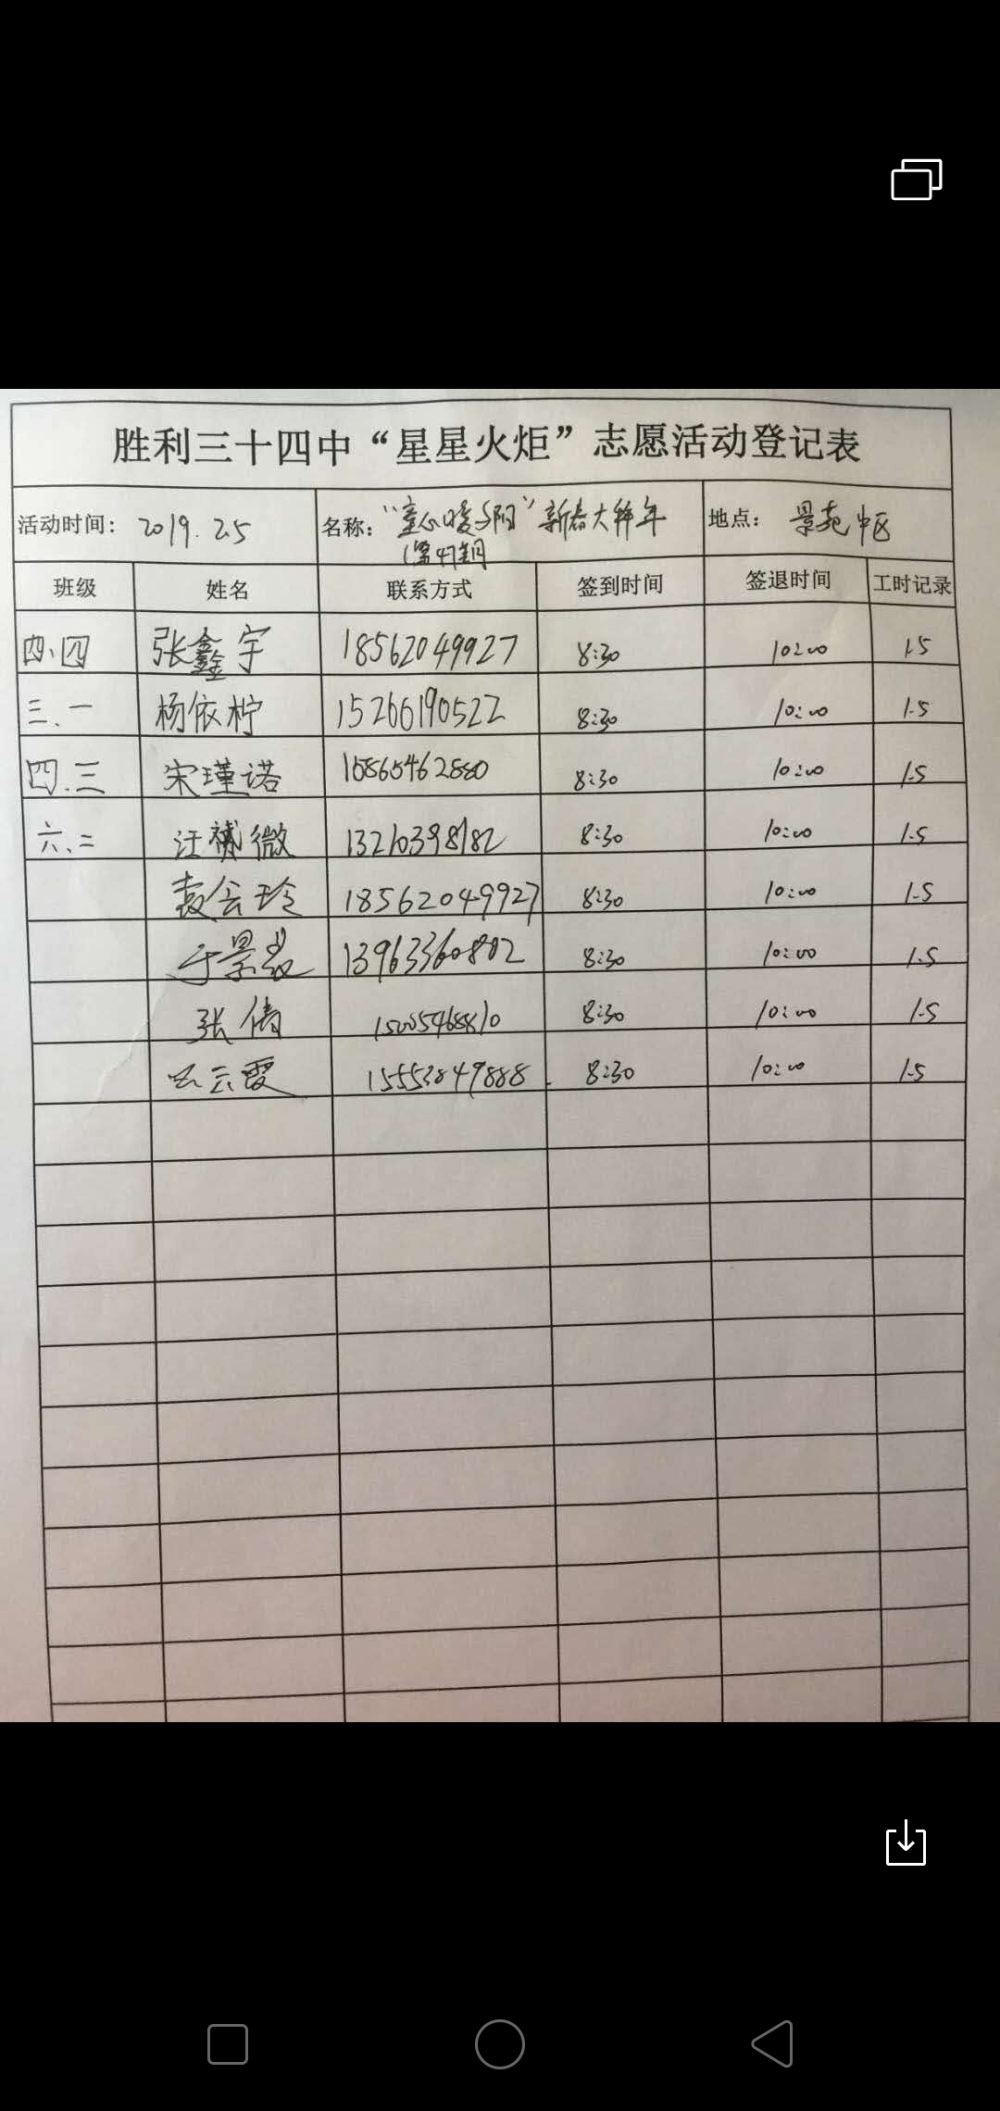 胜利三十四中“星星火炬”志愿活动登记表
活动时间: 2019.2.5 名称: “童心暖夕阳”新春大拜年 地点: 景苑中区
班级 姓名 联系方式 签到时间 签退时间 工时记录
四、四 张鑫宇 18562049927 8:30 10:00 1.5
三、一 杨依柠 15266190522 8:30 10:00 1.5
四.三 宋瑾诺 15865462880 8:30 10:00 1.5
六.二 汪 微 13210398182 8:30 10:00 1.5
袁会玲 18562049927 8:30 10:00 1.5
于景 13963360802 8:30 10:00 1.5
张倩 8:30 10:00 1.5
云霞 15553849888 8:30 10:00 1.5